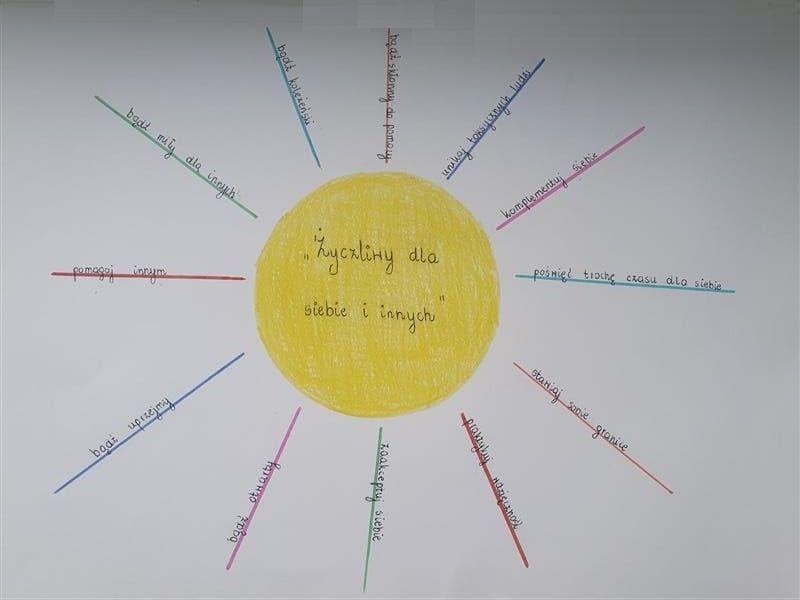 „Życzliwy dla
siebie i innych”
bądź skłonny do pomocy
unikaj toksycznych ludzi
komplementuj siebie
poświęć trochę czasu dla siebie
stawiaj sobie granice
praktykuj wdzięczność
zaakceptuj siebie
bądź otwarty
bądź uprzejmy
pomagaj innym
bądź miły dla innych
bądź koleżeński